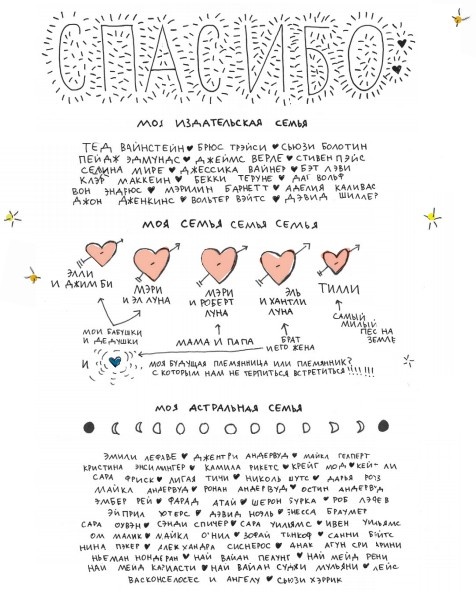 СПАСИБО
МОЯ ИЗДАТЕЛЬСКАЯ СЕМЬЯ
ТЕД ВАЙНСТЕЙН ♥ БРЮС ТРЭЙСИ ♥ СЬЮЗИ БОЛОТИН
ПЕЙДЖ ЭДМУНДС ♥ ДЖЕЙМС ВЕРЛЕ ♥ СТИВЕН ПЭЙС
СЕЛИНА МИРЕ ♥ ДЖЕССИКА ВАЙНЕР ♥ БЭТ ЛЭВИ
КЛЭР МАККЕЙН ♥ БЕККИ ТЕРУНЕ ♥ ДАГ ВОЛЬФ
ВОН ЭНДРЮС ♥ МЭРИЛИН БАРНЕТТ ♥ АДЕЛИЯ КАЛИВАС
ДЖОН ДЖЕНКИНС ♥ ВОЛЬТЕР ВЭЙТС ♥ ДЭВИД ШИЛЛЕР
МОЯ СЕМЬЯ СЕМЬЯ СЕМЬЯ
ЭЛЛИ
И ДЖИМ БИ
МЭРИ
И ЭЛ ЛУНА
МЭРИ
И РОБЕРТ
ЛУНА
ЭЛЬ
И ХАНТЛИ
ЛУНА
ТИЛЛИ
МОИ БАБУШКИ
И ДЕДУШКИ
МАМА И ПАПА
БРАТ
И ЕГО ЖЕНА
САМЫЙ
МИЛЫЙ
ПЕС НА
ЗЕМЛЕ
И
МОЯ БУДУЩАЯ ПЛЕМЯННИЦА ИЛИ ПЛЕМЯННИК?
С КОТОРЫМ НАМ НЕ ТЕРПИТЬСЯ ВСТРЕТИТЬСЯ!!!!!!
МОЯ АСТРАЛЬНАЯ СЕМЬЯ
ЭМИЛИ ЛЕФАВЕ ♥ ДЖЕНТРИ АНДЕРВУД ♥ МАЙКЛ ГЕЛПЕРТ
КРИСТИНА ЭНСИМИНГЕР ♥ КАМИЛА РИКЕТС ♥ КРЕЙГ МОД ♥ КЕЙТ ЛИ
САРА ФРИСК ♥ ЛИГАЯ ТИЧИ ♥ НИКОЛЬ ШУТС ♥ ДАРЬЯ РОТЗ
МАЙКЛ АНДЕРВУД ♥ РОНАН АНДЕРВУД ♥ ОСТИН АНДЕРВУД
ЭМБЕР РЕЙ ♥ ФАРАД АТАЙ ♥ ШЕРОН БУРКА ♥ РОБ ЛЭЧЕВ
ЭЙПРИЛ УОТЕРС ♥ ДЭВИД НОЭЛЬ ♥ ЭНЕССА БРАУМЕР
САРА ОУВЭН ♥ СЭНДИ СПИЧЕР ♥ САРА УИЛЬЯМС ♥ ИВЕН УИЛЬЯМС
ОМ МАЛИК ♥ МАЙКЛ О'НИЛ ♥ ЗОФАЙ ТЫНКОФ ♥ САННИ БЭЙТС
НИНА ПЭКЕР ♥ АЛЕКСАНДРА СИСНЕРОС ♥ АНАК АГУН СРИ КРИНИ
НЬЕМАН НОНДЕРАН ♥ НАЙ ВАЙАН ПЕЛУНГ ♥ НАЙ МЕЙД РЕНИ
НАЙ МЕЙД КАРИАСТИ ♥ НАЙ ВАЙАН СУДХИ МУЛЬЯНИ ♥ ЛЕЙС
ВАСКОНСЕЛОСЕС И АНГЕЛУ ♥ СЬЮЗИ ХЭРРИК